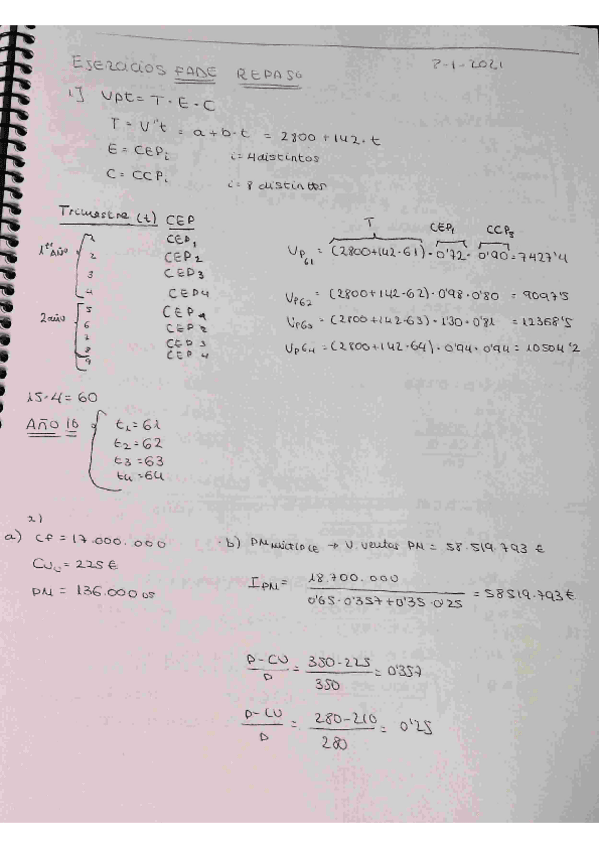 EJERCICIOS FADE REPASO 8-1-2021
1] Vpt = T · E · C
T = V''t = a + b·t = 2800 + 142 · t
E = CEPi i = 4 distintos
C = CCPi i = 8 distintos
Trimestre (t) CEP
1er AÑO
1 CEP1
2 CEP2
3 CEP3
4 CEP4
2 año
5 CEP1
6 CEP2
7 CEP3
8 CEP4
9
T CEP1 CCP5
Vp61 = (2800+142·61) · 0'72 · 0'90 = 7427'4
Vp62 = (2800+142·62) · 0'98 · 0'80 = 9097'5
Vp63 = (2800+142·63) · 1'30 · 0'81 = 12368'5
Vp64 = (2800+142·64) · 0'94 · 0'94 = 10504'2
15·4 = 60
AÑO 16
t1 = 61
t2 = 62
t3 = 63
t4 = 64
2)
a) CF = 17.000.000
CVu = 225 €
PM = 136.000 us
b) PM múltiple → V. ventas PM = 58.519.793 €
IPM = 18.700.000 / 0'65·0'357+0'35·0'25 = 58519.793 €
P-CU / P = 350-225 / 350 = 0'357
P-CU / P = 280-210 / 280 = 0'25